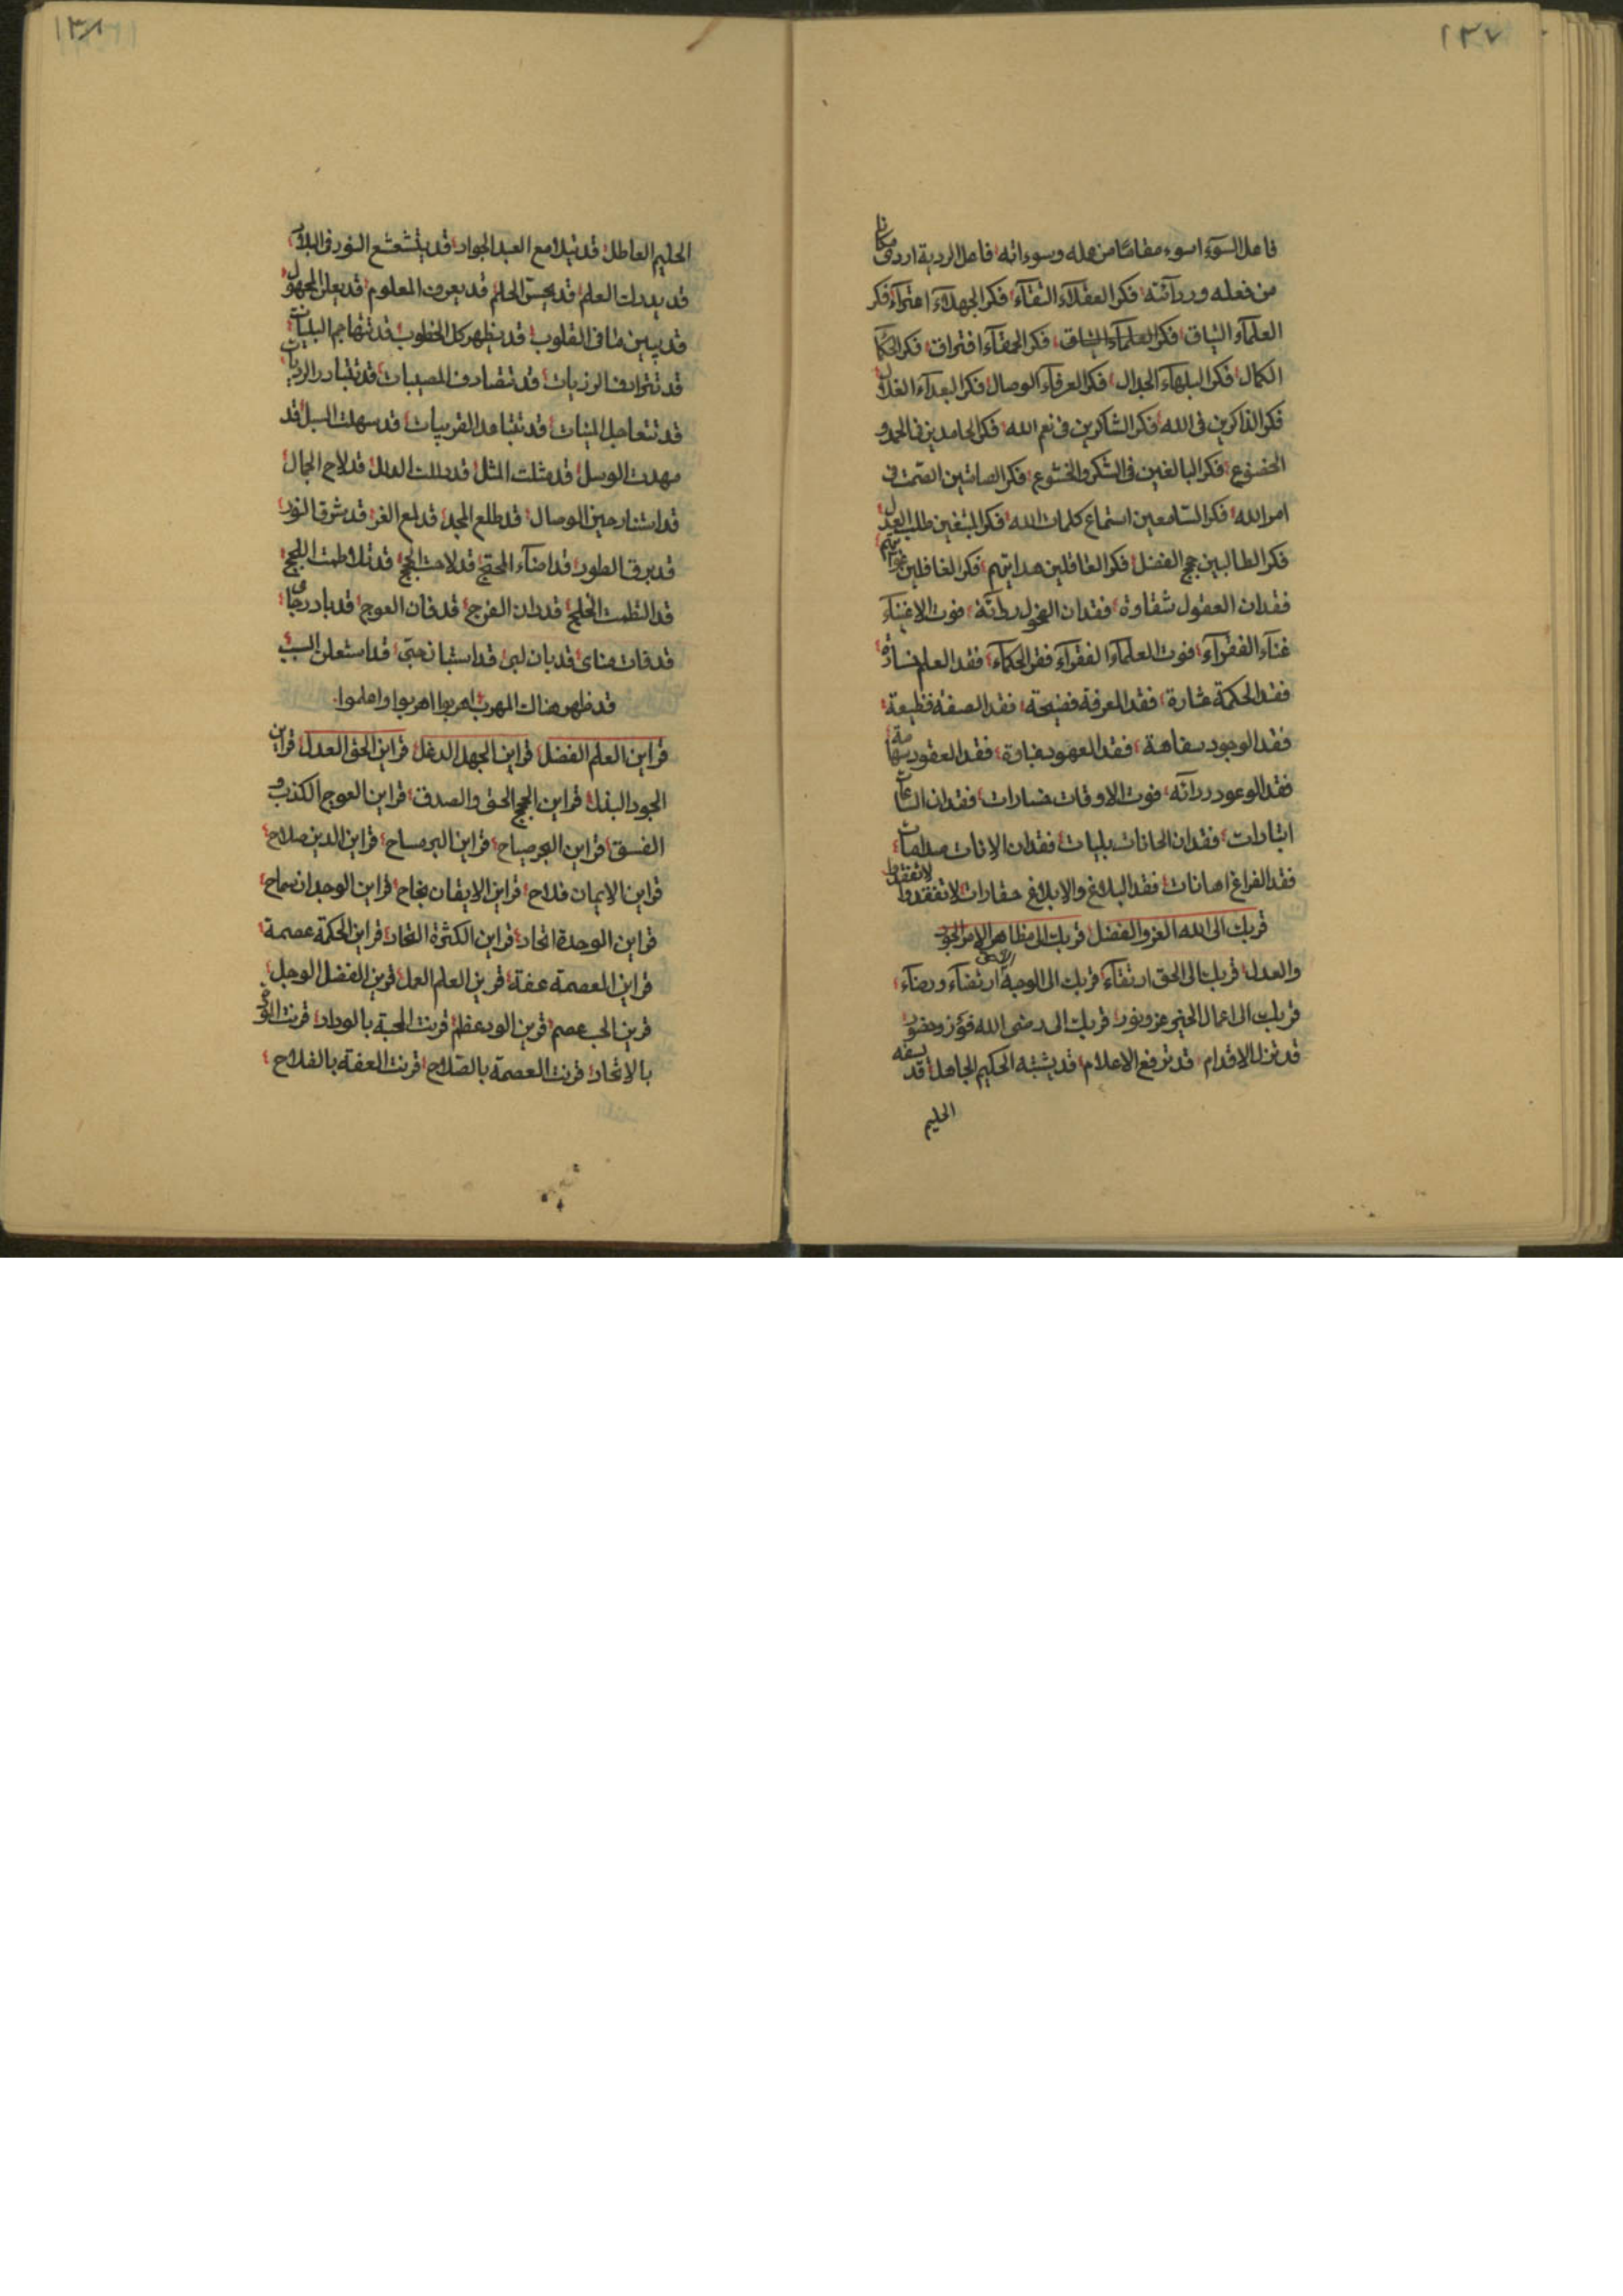 ١٣٧
فاعل السوء اسوء مقاما من عمله وسوءاته فاعل الردية اردى مكانا
من فعله وردآئته فکر العقلاء التقآء فکر الجهلاء افتراء فکر
العلمآء الشياق فکر العلمآء الميثاق فکر الحمقآء افتراق فکر الحکمآء
الکمال فکر البلهآء الجدال فکر العرفآء الوصال فکر البعدآء
فکر الذاکرين فى الله فکر الشاکرين فى نعم الله فکر الحامدين فى الحمد و
الخضوع فکر البالغين فى الشکر والخشوع فکر الصامتين الصمت فى
امر الله فکر السامعين استماع کلمات الله فکر المبتغين طلب العدل
فکر الطالبين حجج الفضل فکر العاقلين هدايتهم فکر الغافلين غوايتهم
فقدان العقول شقاوة فقدان فوت الاغنيآء
غنآء الفقرآء فوت العلمآء الفقرآء فقر الحکمآء فقد العلم خسارة
فقد الحکمة فقد المعرفة فضيحة فقد الصفة فظيعة
فقد الوجود سفاهة فقد العهود غباوة فقد العقود
فقد الوعود فوت الاوقات خسارات فقدان الساعات
فقدان الحانات بليات فقدان الانات
فقد الفراغ اهانات فقد البلاغ والابلاغ حقارات لا تفقدوا لا تفقدوا
قربک الى الله العز والفضل قربک الى مظاهر الامر الجود
والعدل قربک الى الحق ارتقآء قربک الى الوجهة ارتضآء ورضآء
قربک الى اعمال الخير عز ونور قربک الى رضى الله فوز وحضور
قد تزل الاقدام قد ترفع الاعلام قد يشتبه الحکيم الجاهل قد يسفه
الحليم
١٣٨
الحليم العاطل قد يتلامع العبد الجواد قد يتشعشع النور فى البلاد
قد يدرک العلم قد يحس الحلم قد يعرف المعلوم قد يعلن المجهول
قد يبين ما فى القلوب قد يظهر کل الخطوب قد تتهاجم البليات
قد تترادف الرزيات قد تتصادف المصيبات قد تتبادر
قد تتعاجل قد تتباعد القريبات قد سهلت السبل قد
مهدت الوسل قد مثلت المثل قد دللت الدلل قد لاح الجمال
قد استنار حين الوصال قد طلع المجد قد لمع الغر قد شرق النور
قد برق الطور قد اضآء قد لاحت الحجج قد تلاطمت اللجج
قد التطمت الخليج قد دان الفرج قد فات العوج قد بادر رجائى
قد فات منائى قد بان لبى قد استبان حبى قد استعلن السبب
قد ظهر هناک المهرب اهربوا اهربوا واعلموا
قراين العلم الفضل قراين الجهل الدغل قراين الحق العدل قراين
الجود البذل قراين الحجج الحق والصدق قراين العوج الکذب و
الفسق قراين البحر صياح قراين البر مساح قراين الدين صلاح
قراين الايمان فلاح قراين الايقان نجاح قراين الوجدان سماح
قراين الوحدة اتحاد قراين الکثرة قراين الحکمة عصمة
قراين العصمة عفة قرين العلم العمل قرين الفضل الوجل
قرين الحب عصم قرين الود عظم قرنت المحبة بالوداد قرنت
بالاتحاد قرنت العصمة بالصلاح قرنت العفة بالفلاح